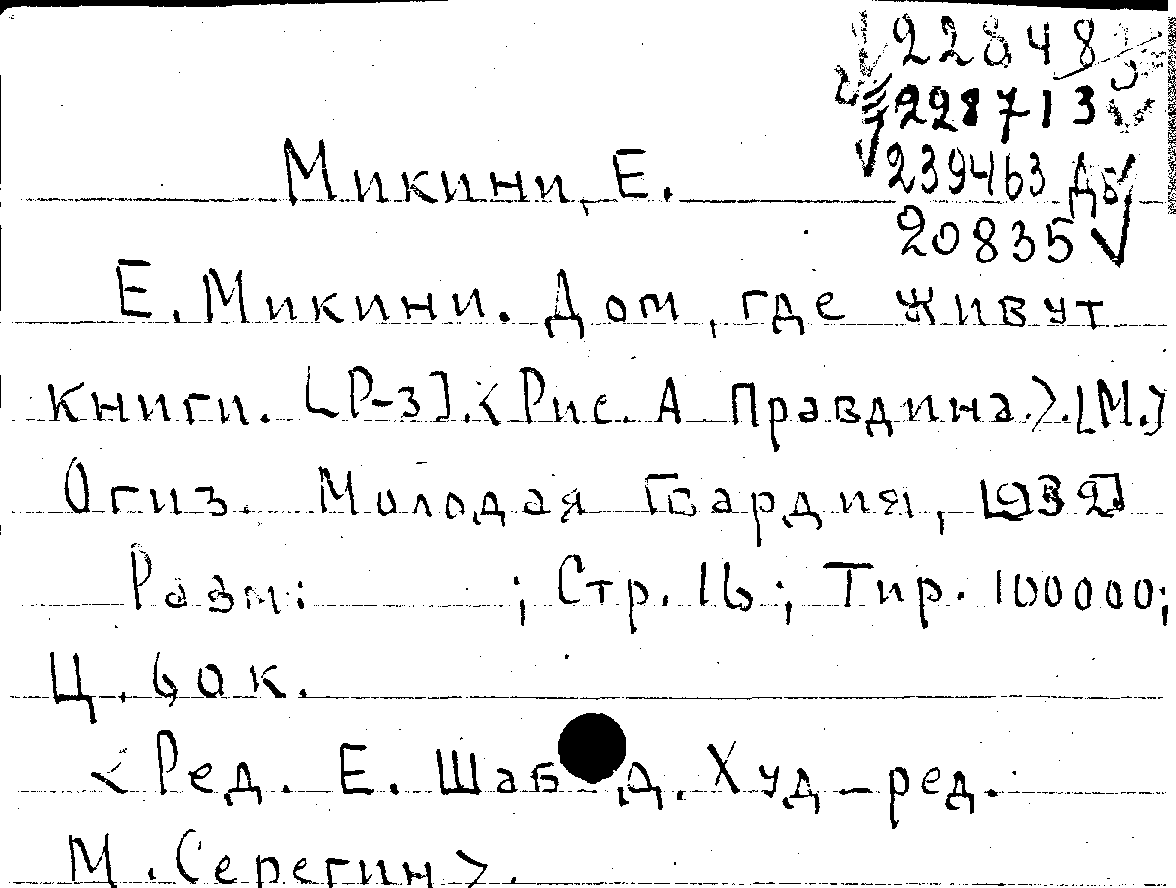 22848
228713
239463 ДБ
20835
Микини, Е.
Е. Микини. Дом, где живут
книги. [Р-з]. <Рис. А Правдина.>. [М.]
Огиз. Молодая Гвардия, [932]
Разм: ; Стр. 16; Тир. 100000;
Ц. 60 к.
<Ред. Е. Шаб д. Худ-ред.
М. Серегин>.